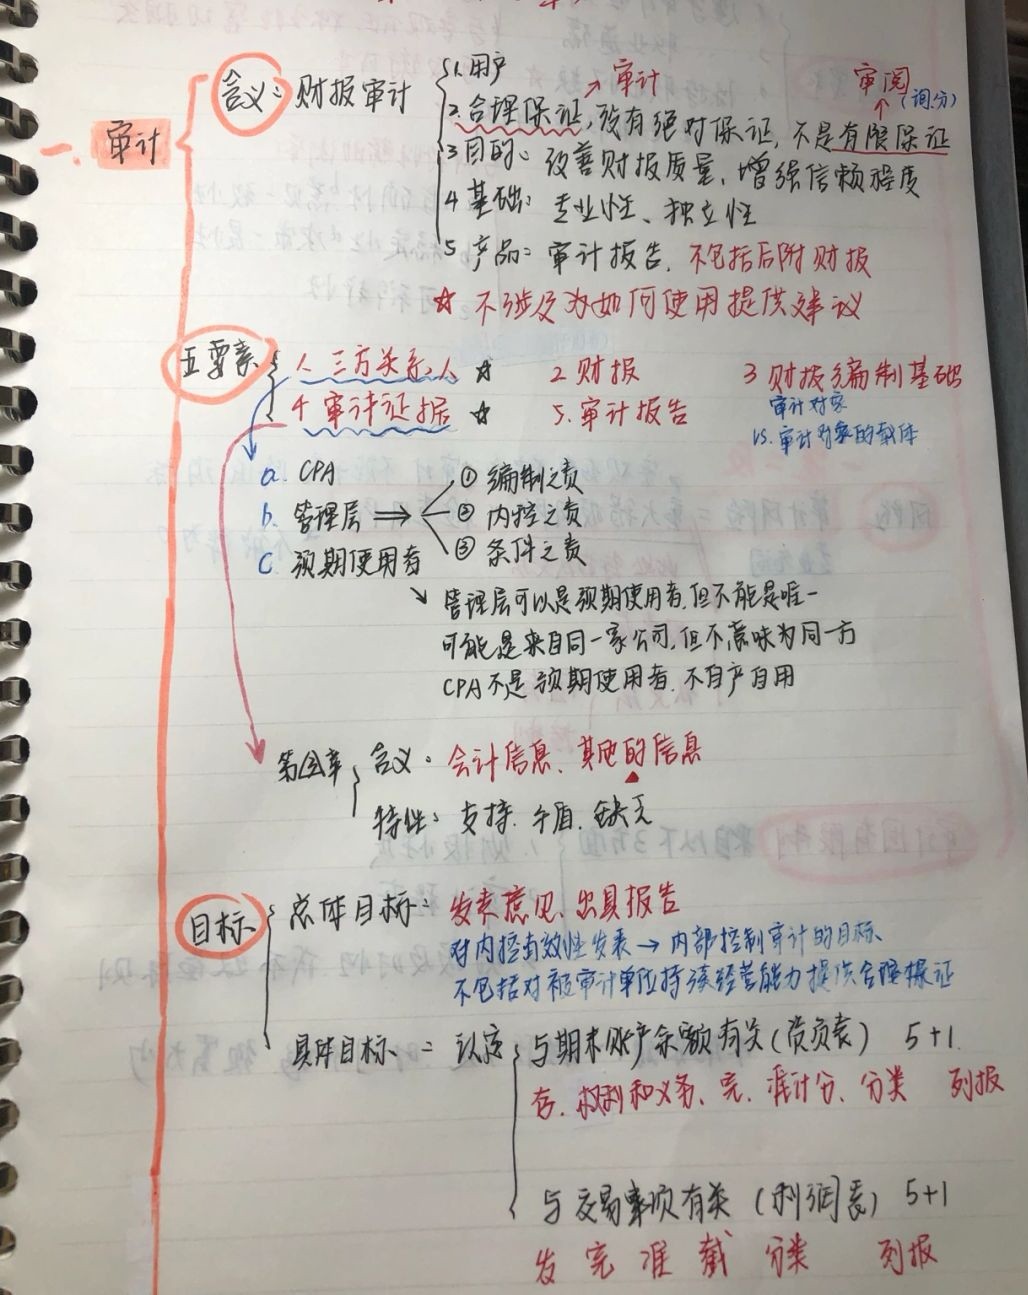 一. 审计
含义: 财报审计
1. 用户
→审计
审阅
(询、分)
2. 合理保证, 没有绝对保证, 不是有限保证
3 目的: 改善财报质量, 增强信赖程度
4 基础: 专业性、独立性
5 产品: 审计报告, 不包括后附财报
☆ 不涉及为如何使用提供建议
五要素
1. 三方关系人 ☆ 2 财报 3 财报编制基础
审计对象
4 审计证据 ☆ 5. 审计报告
VS. 审计对象的载体
a. CPA
b. 管理层 ⇒ ① 编制之责
② 内控之责
③ 条件之责
c. 预期使用者
↘ 管理层可以是预期使用者, 但不能是唯一
可能是来自同一家公司, 但不意味为同一方
CPA不是预期使用者, 不自产自用
第三章
含义: 会计信息、其他的信息
特性: 支持. 矛盾. 缺乏
目标
总体目标: 发表意见、出具报告
对内控有效性发表 → 内部控制审计的目标、
不包括对被审计单位持续经营能力提供合理保证
具体目标 = 认定
与期末账户余额有关(资负表) 5+1
存. 权利和义务、完. 准计分、分类 列报
与交易事项有关 (利润表) 5+1
发 完 准 截 分类 列报